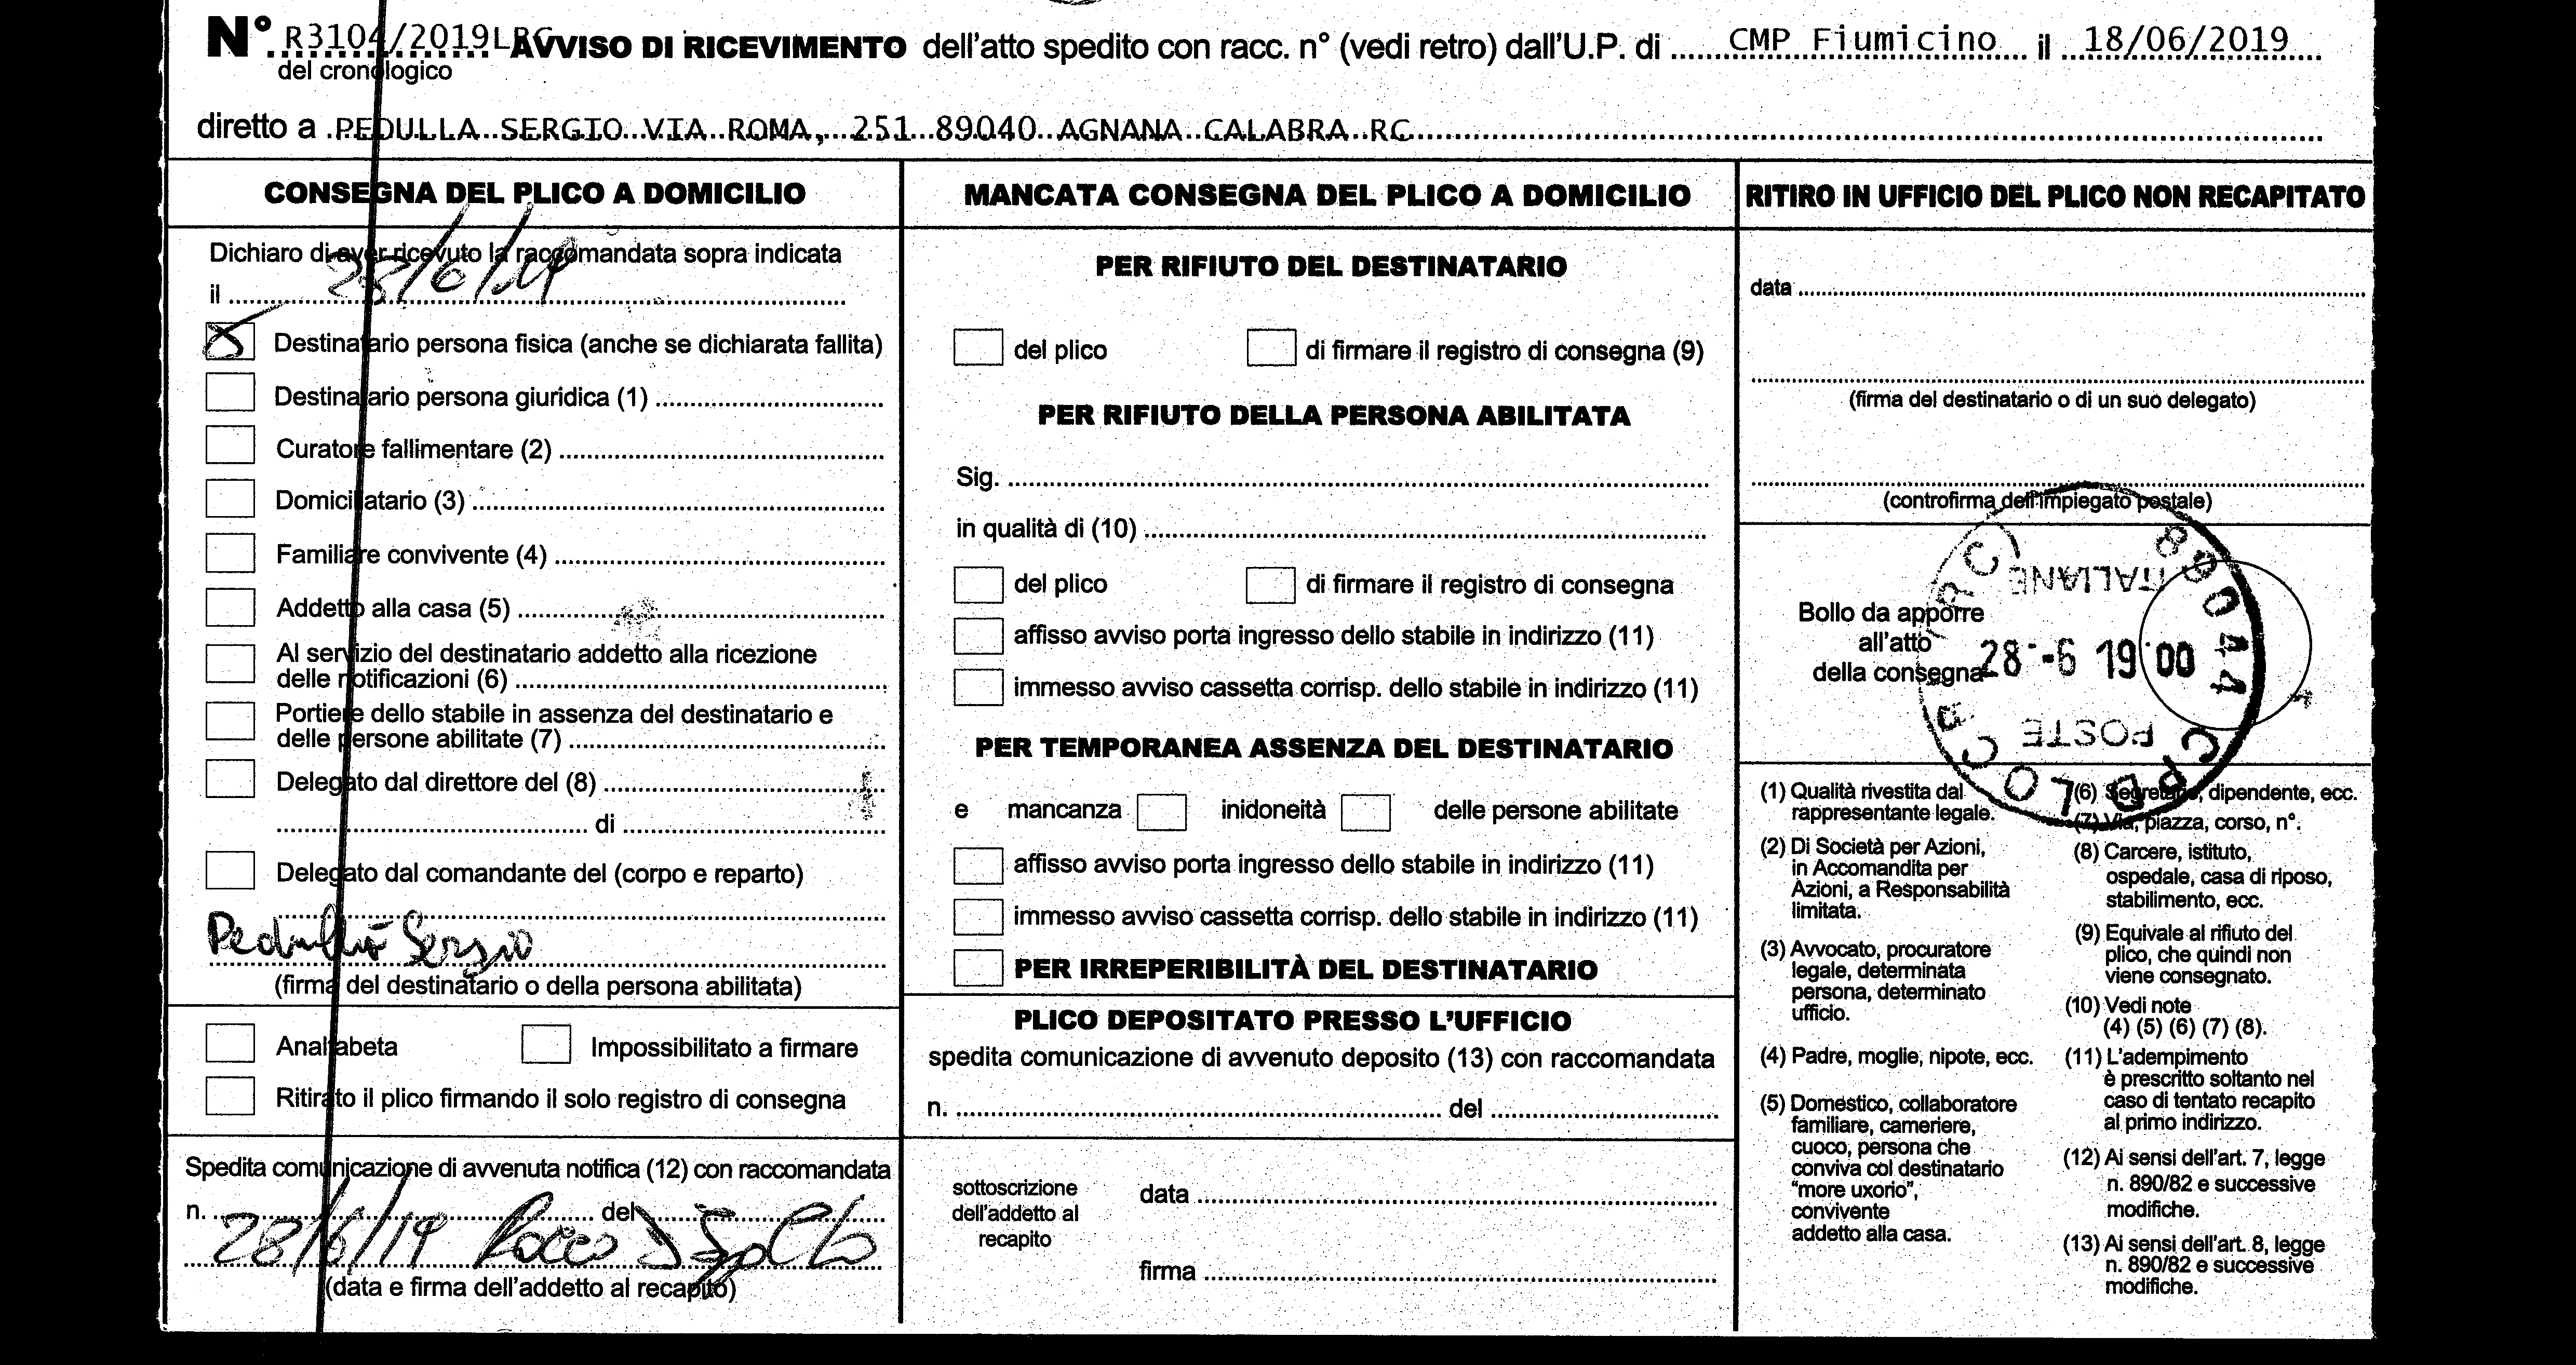 N° R3104/2019LRG AVVISO DI RICEVIMENTO dell'atto spedito con racc. n° (vedi retro) dall'U.P. di CMP Fiumicino il 18/06/2019
del cronologico
diretto a PEDULLA SERGIO VIA ROMA, 251 89040 AGNANA CALABRA RC
CONSEGNA DEL PLICO A DOMICILIO
Dichiaro di aver ricevuto la raccomandata sopra indicata
il 28/6/19
Destinatario persona fisica (anche se dichiarata fallita)
Destinatario persona giuridica (1)
Curatore fallimentare (2)
Domiciliatario (3)
Familiare convivente (4)
Addetto alla casa (5)
Al servizio del destinatario addetto alla ricezione
delle notificazioni (6)
Portiere dello stabile in assenza del destinatario e
delle persone abilitate (7)
Delegato dal direttore del (8)
di
Delegato dal comandante del (corpo e reparto)
Pedullà Sergio
(firma del destinatario o della persona abilitata)
Analfabeta Impossibilitato a firmare
Ritirato il plico firmando il solo registro di consegna
Spedita comunicazione di avvenuta notifica (12) con raccomandata
n. del
28/6/19 Rocco
(data e firma dell'addetto al recapito)
MANCATA CONSEGNA DEL PLICO A DOMICILIO
PER RIFIUTO DEL DESTINATARIO
del plico di firmare il registro di consegna (9)
PER RIFIUTO DELLA PERSONA ABILITATA
Sig.
in qualità di (10)
del plico di firmare il registro di consegna
affisso avviso porta ingresso dello stabile in indirizzo (11)
immesso avviso cassetta corrisp. dello stabile in indirizzo (11)
PER TEMPORANEA ASSENZA DEL DESTINATARIO
e mancanza inidoneità delle persone abilitate
affisso avviso porta ingresso dello stabile in indirizzo (11)
immesso avviso cassetta corrisp. dello stabile in indirizzo (11)
PER IRREPERIBILITÀ DEL DESTINATARIO
PLICO DEPOSITATO PRESSO L'UFFICIO
spedita comunicazione di avvenuto deposito (13) con raccomandata
n. del
sottoscrizione
dell'addetto al
recapito
data
firma
RITIRO IN UFFICIO DEL PLICO NON RECAPITATO
data
(firma del destinatario o di un suo delegato)
(controfirma dell'impiegato postale)
Bollo da apporre
all'atto
della consegna
89044 CPD LOCRI (RC)
POSTE ITALIANE
28-6 19 00
(1) Qualità rivestita dal
rappresentante legale.
(2) Di Società per Azioni,
in Accomandita per
Azioni, a Responsabilità
limitata.
(3) Avvocato, procuratore
legale, determinata
persona, determinato
ufficio.
(4) Padre, moglie, nipote, ecc.
(5) Domestico, collaboratore
familiare, cameriere,
cuoco, persona che
conviva col destinatario
"more uxorio",
convivente
addetto alla casa.
(6) Segretario, dipendente, ecc.
(7) Via, piazza, corso, n°.
(8) Carcere, istituto,
ospedale, casa di riposo,
stabilimento, ecc.
(9) Equivale al rifiuto del
plico, che quindi non
viene consegnato.
(10) Vedi note
(4) (5) (6) (7) (8).
(11) L'adempimento
è prescritto soltanto nel
caso di tentato recapito
al primo indirizzo.
(12) Ai sensi dell'art. 7, legge
n. 890/82 e successive
modifiche.
(13) Ai sensi dell'art. 8, legge
n. 890/82 e successive
modifiche.